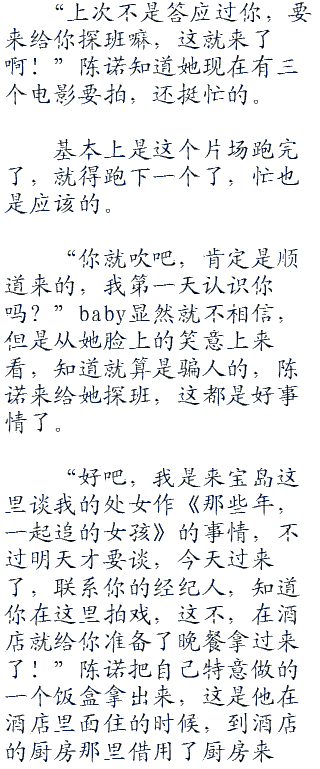 “上次不是答应过你，要
来给你探班嘛，这就来了
啊！”陈诺知道她现在有三
个电影要拍，还挺忙的。
基本上是这个片场跑完
了，就得跑下一个了，忙也
是应该的。
“你就吹吧，肯定是顺
道来的，我第一天认识你
吗？”baby显然就不相信，
但是从她脸上的笑意上来
看，知道就算是骗人的，陈
诺来给她探班，这都是好事
情了。
“好吧，我是来宝岛这
里谈我的处女作《那些年，
一起追的女孩》的事情，不
过明天才要谈，今天过来
了，联系你的经纪人，知道
你在这里拍戏，这不，在酒
店就给你准备了晚餐拿过来
了！”陈诺把自己特意做的
一个饭盒拿出来，这是他在
酒店里面住的时候，到酒店
的厨房那里借用了厨房来